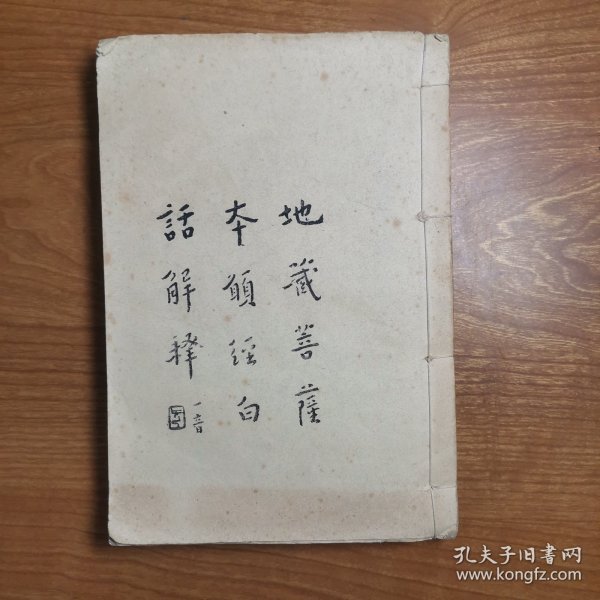 地藏菩薩
本願經白
話解釋
一音
孔夫子旧书网
www.kongfz.com